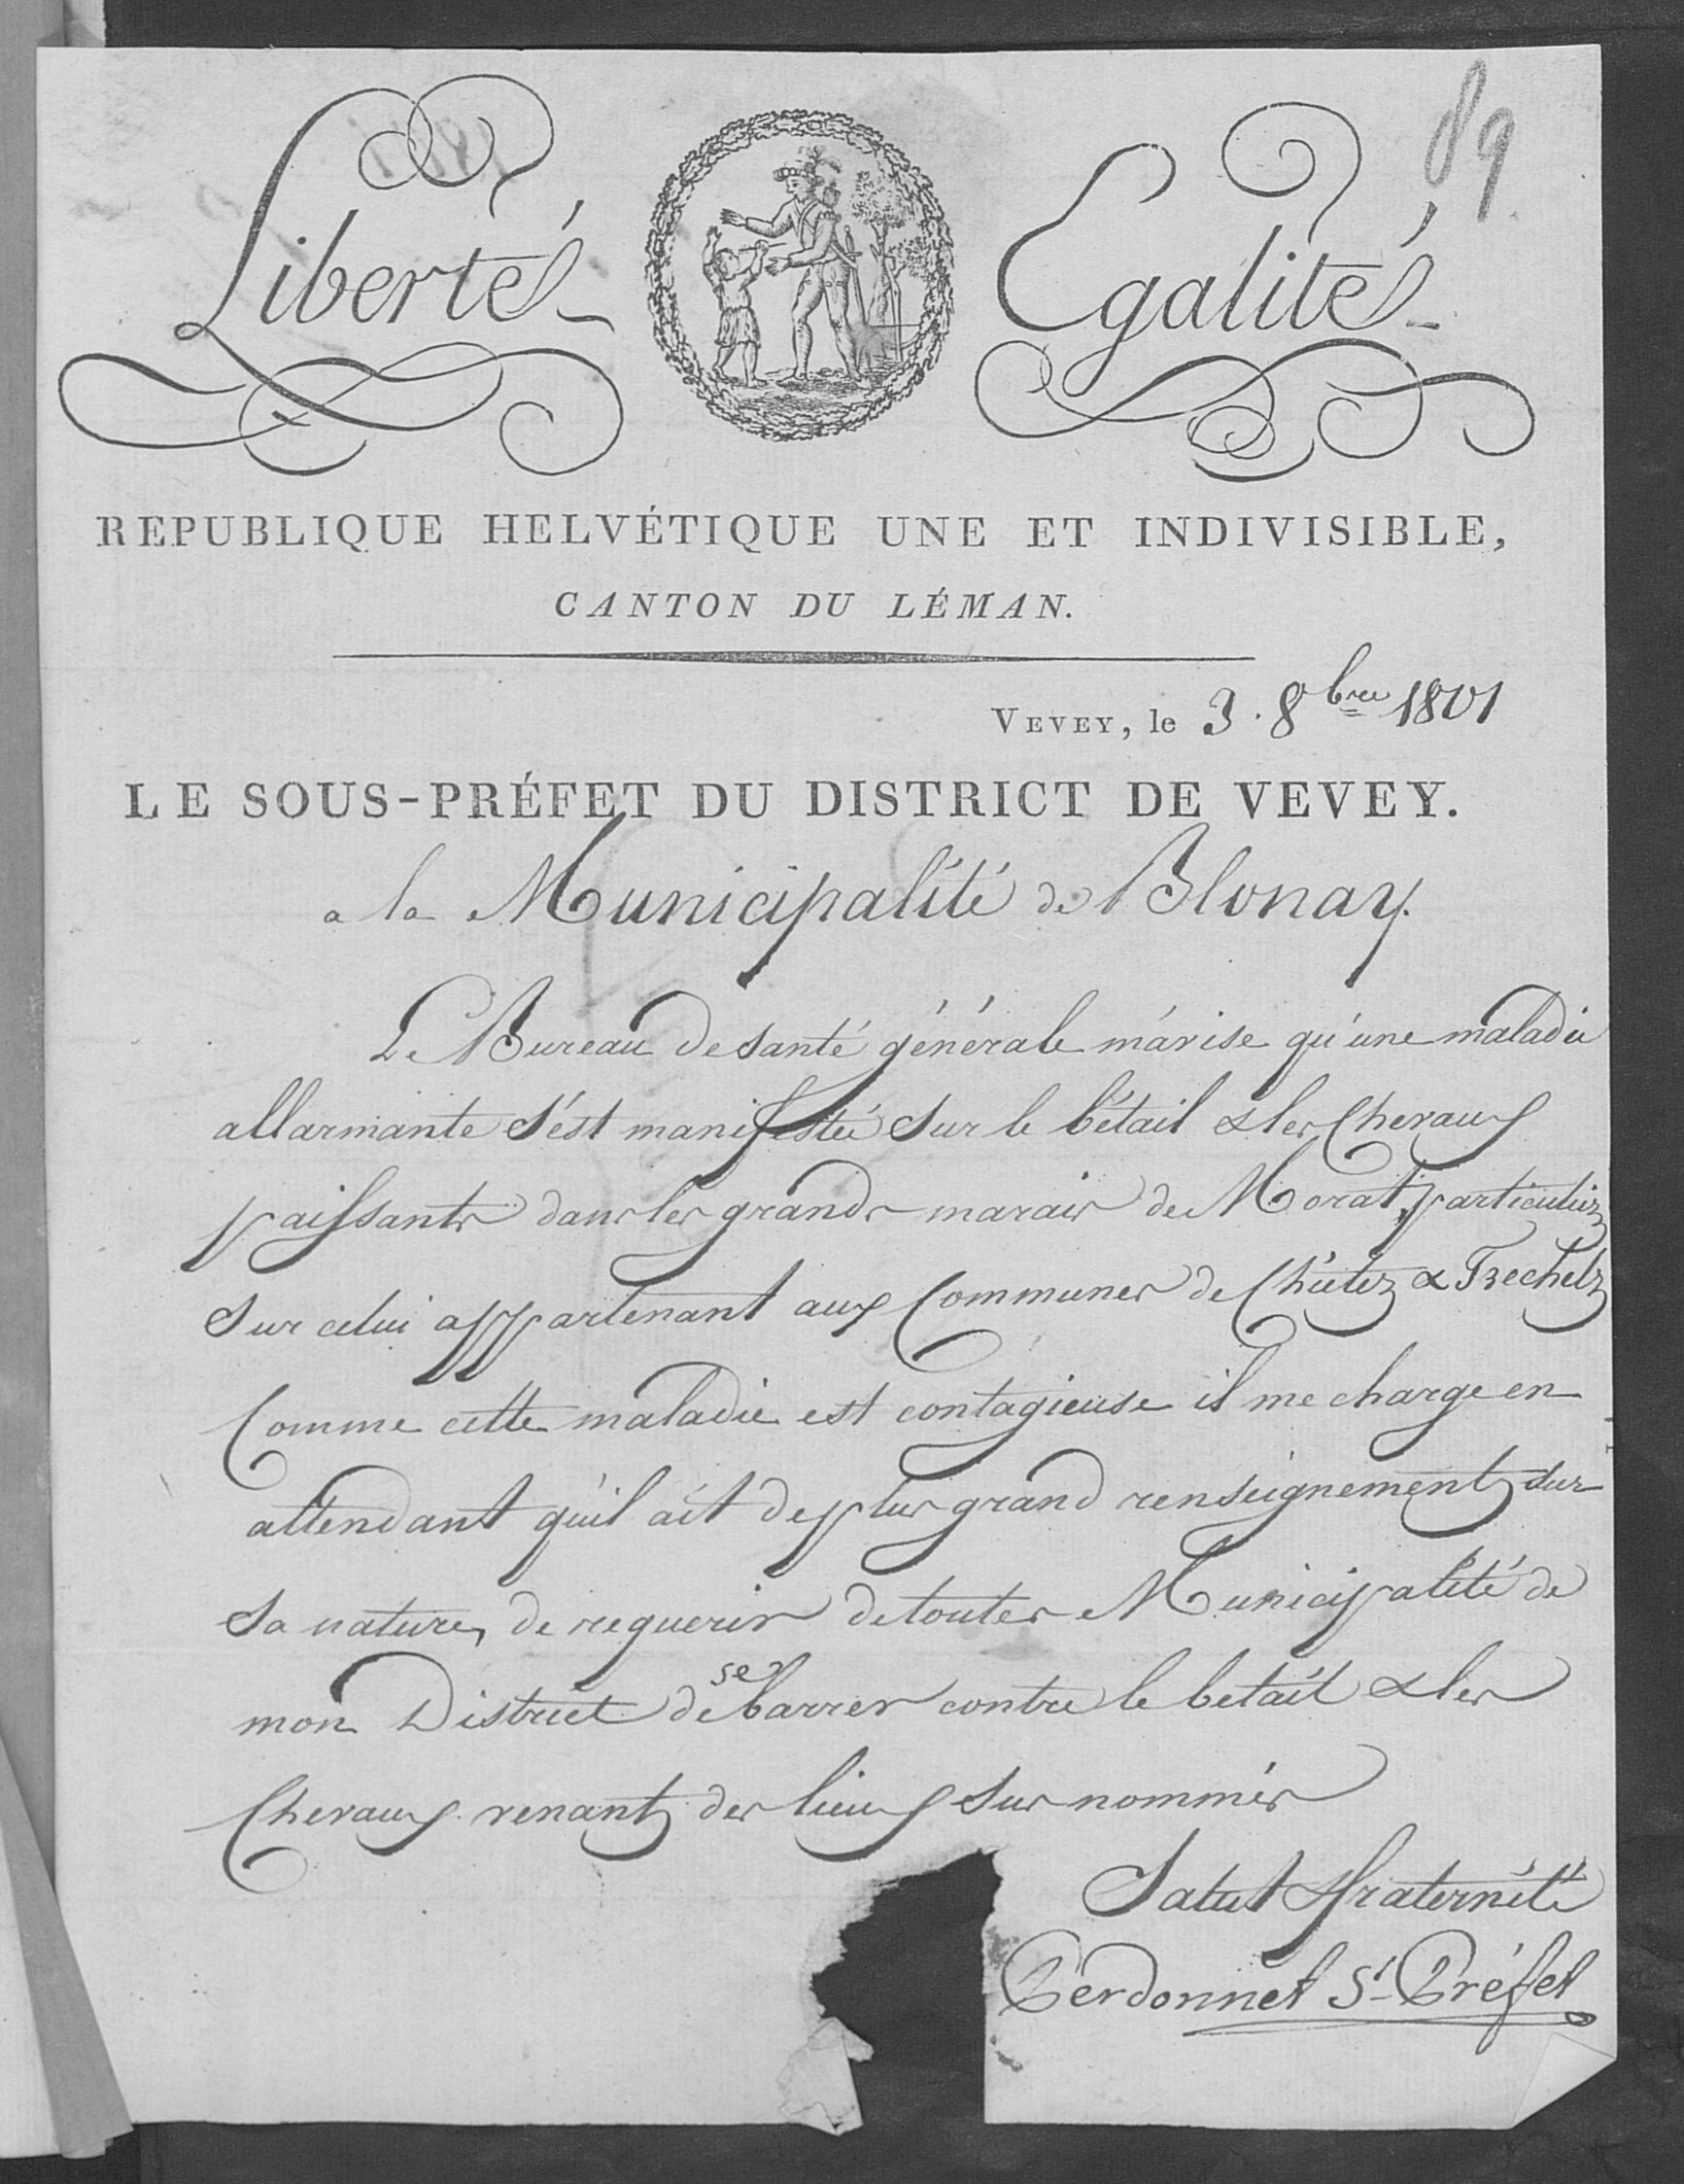 89.
Liberté Egalité
REPUBLIQUE HELVÉTIQUE UNE ET INDIVISIBLE,
CANTON DU LÉMAN.
VEVEY, le 3. 8bre 1801
LE SOUS-PRÉFET DU DISTRICT DE VEVEY.
a la Municipalité de Blonay.
Le Bureau de santé générale m'avise qu'une maladie
allarmante s'est manifestée sur le bétail & les Chevaux
paissants dans les grands marais de Morat, particulier
sur celui appartenant aux Communes de Chietez & Frechelz
Comme cette maladie est contagieuse il me charge en
attendant qu'il ait de plus grand renseignements sur
sa nature, de requerir de toutes Municipalité de
mon District de se barrer contre le betail & les
Chevaux venants des lieux sus nommés
Salut & fraternité
Perdonnet St Préfet